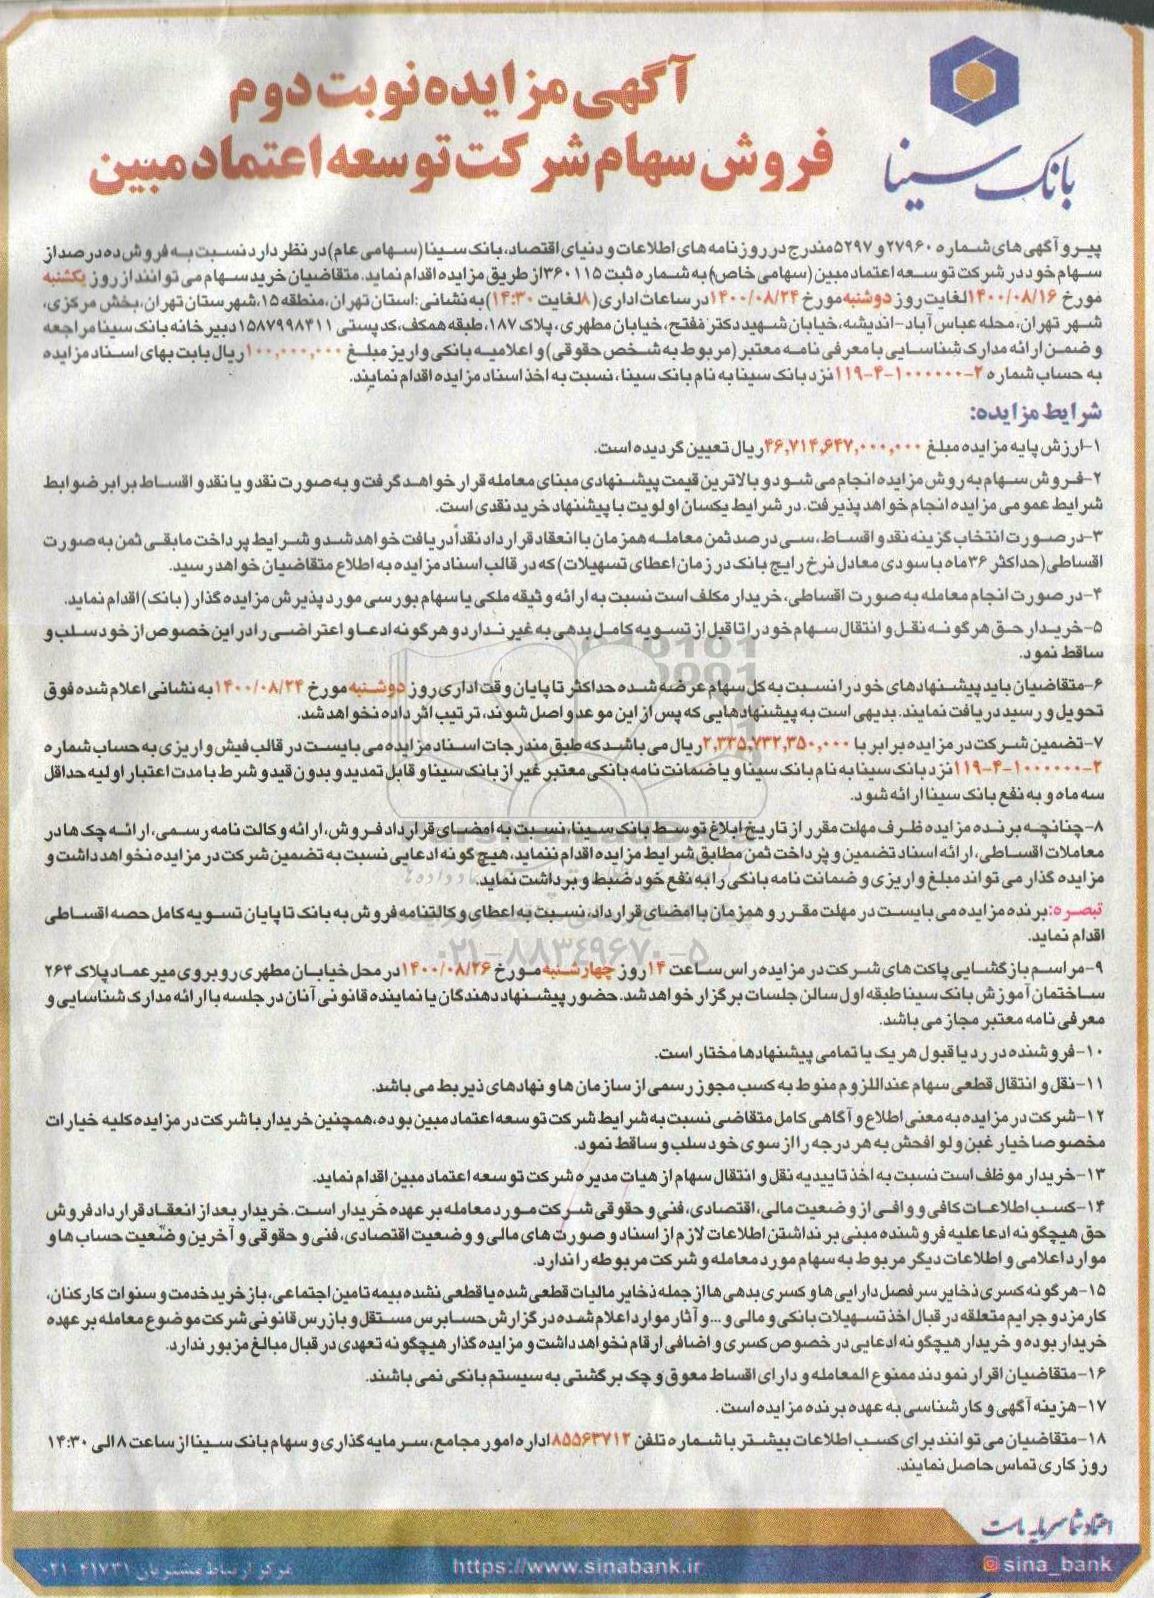 بانک سینا
آگهی مزایده نوبت دوم
فروش سهام شرکت توسعه اعتماد مبین
پیرو آگهی های شماره ۲۷۹۶۰ و ۵۲۹۷ مندرج در روزنامه های اطلاعات و دنیای اقتصاد، بانک سینا (سهامی عام) در نظر دارد نسبت به فروش ده درصد از
سهام خود در شرکت توسعه اعتماد مبین (سهامی خاص) به شماره ثبت ۳۶۰۱۱۵ از طریق مزایده اقدام نماید. متقاضیان خرید سهام می توانند از روز یکشنبه
مورخ ۱۴۰۰/۰۸/۱۶ لغایت روز دوشنبه مورخ ۱۴۰۰/۰۸/۲۴ در ساعات اداری (۸ لغایت ۱۴:۳۰) به نشانی: استان تهران، منطقه ۱۵، شهرستان تهران، بخش مرکزی،
شهر تهران، محله عباس آباد-اندیشه، خیابان شهید دکتر مفتح، خیابان مطهری، پلاک ۱۸۷، طبقه همکف، کدپستی ۱۵۸۷۹۹۸۴۱۱ دبیرخانه بانک سینا مراجعه
و ضمن ارائه مدارک شناسایی یا معرفی نامه معتبر (مربوط به شخص حقوقی) و اعلامیه بانکی واریز مبلغ ۱۰۰,۰۰۰,۰۰۰ ریال بابت بهای اسناد مزایده
به حساب شماره ۲-۱۰۰۰۰۰۰-۴-۱۱۹ نزد بانک سینا به نام بانک سینا، نسبت به اخذ اسناد مزایده اقدام نمایند.
شرایط مزایده:
۱-ارزش پایه مزایده مبلغ ۴۶,۷۱۴,۶۴۷,۰۰۰,۰۰۰ ریال تعیین گردیده است.
۲-فروش سهام به روش مزایده انجام می شود و بالاترین قیمت پیشنهادی مبنای معامله قرار خواهد گرفت و به صورت نقد و یا نقد و اقساط برابر ضوابط
شرایط عمومی مزایده انجام خواهد پذیرفت. در شرایط یکسان اولویت با پیشنهاد خرید نقدی است.
۳-در صورت انتخاب گزینه نقد و اقساط، سی درصد ثمن معامله همزمان با انعقاد قرارداد نقداً دریافت خواهد شد و شرایط پرداخت مابقی ثمن به صورت
اقساطی (حداکثر ۳۶ ماه با سودی معادل نرخ رایج بانک در زمان اعطای تسهیلات) که در قالب اسناد مزایده به اطلاع متقاضیان خواهد رسید.
۴-در صورت انجام معامله به صورت اقساطی، خریدار مکلف است نسبت به ارائه وثیقه ملکی یا سهام بورسی مورد پذیرش مزایده گذار (بانک) اقدام نماید.
۵-خریدار حق هرگونه نقل و انتقال سهام خود را تا قبل از تسویه کامل بدهی به غیر ندارد و هرگونه ادعا و اعتراضی را در این خصوص از خود سلب و
ساقط نمود.
۶-متقاضیان باید پیشنهادهای خود را نسبت به کل سهام عرضه شده حداکثر تا پایان وقت اداری روز دوشنبه مورخ ۱۴۰۰/۰۸/۲۴ به نشانی اعلام شده فوق
تحویل و رسید دریافت نمایند. بدیهی است به پیشنهادهایی که پس از این موعد واصل شوند، ترتیب اثر داده نخواهد شد.
۷-تضمین شرکت در مزایده برابر با ۲,۳۳۵,۷۳۲,۳۵۰,۰۰۰ ریال می باشد که طبق مندرجات اسناد مزایده می بایست در قالب فیش واریزی به حساب شماره
۲-۱۰۰۰۰۰۰-۴-۱۱۹ نزد بانک سینا به نام بانک سینا و یا ضمانت نامه بانکی معتبر غیر از بانک سینا و قابل تمدید و بدون قید و شرط با مدت اعتبار اولیه حداقل
سه ماه و به نفع بانک سینا ارائه شود.
۸-چنانچه برنده مزایده ظرف مهلت مقرر از تاریخ ابلاغ توسط بانک سینا، نسبت به امضای قرارداد فروش، ارائه وکالت نامه رسمی، ارائه چک ها در
معاملات اقساطی، ارائه اسناد تضمین و پرداخت ثمن مطابق شرایط مزایده اقدام ننماید، هیچ گونه ادعایی نسبت به تضمین شرکت در مزایده نخواهد داشت و
مزایده گذار می تواند مبلغ واریزی و ضمانت نامه بانکی را به نفع خود ضبط و برداشت نماید.
تبصره: برنده مزایده می بایست در مهلت مقرر و همزمان با امضای قرارداد، نسبت به اعطای وکالتنامه فروش به بانک تا پایان تسویه کامل حصه اقساطی
اقدام نماید.
۰۲۱-۸۸۳۴۹۶۷۰-۵
۹-مراسم بازگشایی پاکت های شرکت در مزایده راس ساعت ۱۴ روز چهارشنبه مورخ ۱۴۰۰/۰۸/۲۶ در محل خیابان مطهری روبروی میرعماد پلاک ۲۶۴
ساختمان آموزش بانک سینا طبقه اول سالن جلسات برگزار خواهد شد. حضور پیشنهاد دهندگان یا نماینده قانونی آنان در جلسه با ارائه مدارک شناسایی و
معرفی نامه معتبر مجاز می باشد.
۱۰-فروشنده در رد یا قبول هر یک یا تمامی پیشنهادها مختار است.
۱۱-نقل و انتقال قطعی سهام عنداللزوم منوط به کسب مجوز رسمی از سازمان ها و نهادهای ذیربط می باشد.
۱۲-شرکت در مزایده به معنی اطلاع و آگاهی کامل متقاضی نسبت به شرایط شرکت توسعه اعتماد مبین بوده، همچنین خریدار با شرکت در مزایده کلیه خیارات
مخصوصا خیار غبن ولو افحش به هر درجه را از سوی خود سلب و ساقط نمود.
۱۳-خریدار موظف است نسبت به اخذ تاییدیه نقل و انتقال سهام از هیات مدیره شرکت توسعه اعتماد مبین اقدام نماید.
۱۴-کسب اطلاعات کافی و وافی از وضعیت مالی، اقتصادی، فنی و حقوقی شرکت مورد معامله بر عهده خریدار است. خریدار بعد از انعقاد قرارداد فروش
حق هیچگونه ادعا علیه فروشنده مبنی بر نداشتن اطلاعات لازم از اسناد و صورت های مالی و وضعیت اقتصادی، فنی و حقوقی و آخرین وضعیت حساب ها و
موارد اعلامی و اطلاعات دیگر مربوط به سهام مورد معامله و شرکت مربوطه را ندارد.
۱۵-هرگونه کسری ذخایر سرفصل دارایی ها و کسری بدهی ها از جمله ذخایر مالیات قطعی شده یا قطعی نشده بیمه تامین اجتماعی، بازخرید خدمت و سنوات کارکنان،
کارمزد و جرایم متعلقه در قبال اخذ تسهیلات بانکی و مالی و ... و آثار موارد اعلام شده در گزارش حسابرس مستقل و بازرس قانونی شرکت موضوع معامله بر عهده
خریدار بوده و خریدار هیچگونه ادعایی در خصوص کسری و اضافی ارقام نخواهد داشت و مزایده گذار هیچگونه تعهدی در قبال مبالغ مزبور ندارد.
۱۶-متقاضیان اقرار نمودند ممنوع المعامله و دارای اقساط معوق و چک برگشتی به سیستم بانکی نمی باشند.
۱۷-هزینه آگهی و کارشناسی به عهده برنده مزایده است.
۱۸-متقاضیان می توانند برای کسب اطلاعات بیشتر با شماره تلفن ۸۵۵۶۳۷۱۲ اداره امور مجامع، سرمایه گذاری و سهام بانک سینا از ساعت ۸ الی ۱۴:۳۰
روز کاری تماس حاصل نمایند.
اعتماد شما سرمایه ماست
sina_bank
https://www.sinabank.ir
مرکز ارتباط مشتریان ۴۱۷۳۱-۰۲۱